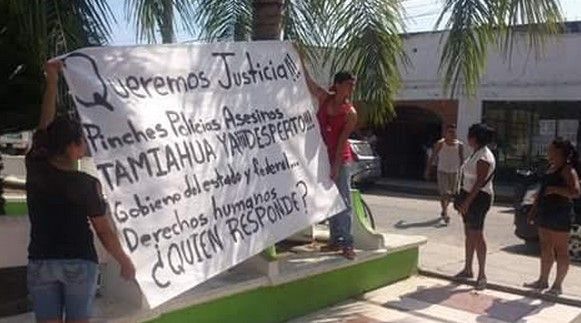 Queremos Justicia!!!
Pinches Policias Asesinos
TAMIAHUA YA DESPERTO!!!
Gobierno del estado y federal...
Derechos humanos
¿QUIEN RESPONDE?